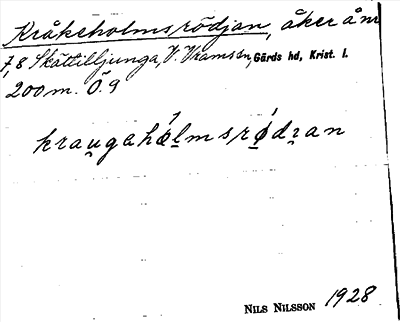 Kråkeholmsrödjan, åker å nr
7,8 Skättilljunga, V. Vram sn, Gärds hd, Krist. l.
200 m. Ö 9
krau̯gahólmsrǿdɀan
NILS NILSSON 1928